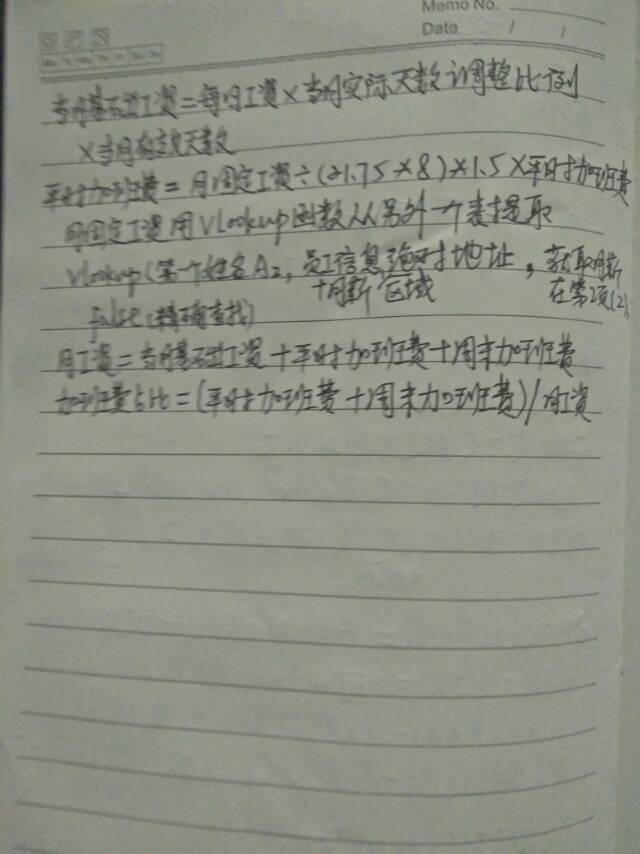 Memo No.
Date / /
Mo Tu We Th Fr Sa Su
当月基础工资=每月工资×当月实际天数调整比例
×当月有效天数
平时加班费=月固定工资÷(21.75×8)×1.5×平时加班费
月固定工资用Vlookup函数从另外一个表提取
Vlookup(第一个姓名A2,员工信息绝对地址,获取月薪
+月薪 区域 在第2项(2),
false(精确查找)
月工资=当月基础工资+平时加班费+周末加班费
加班费占比=(平时加班费+周末加班费)/月工资